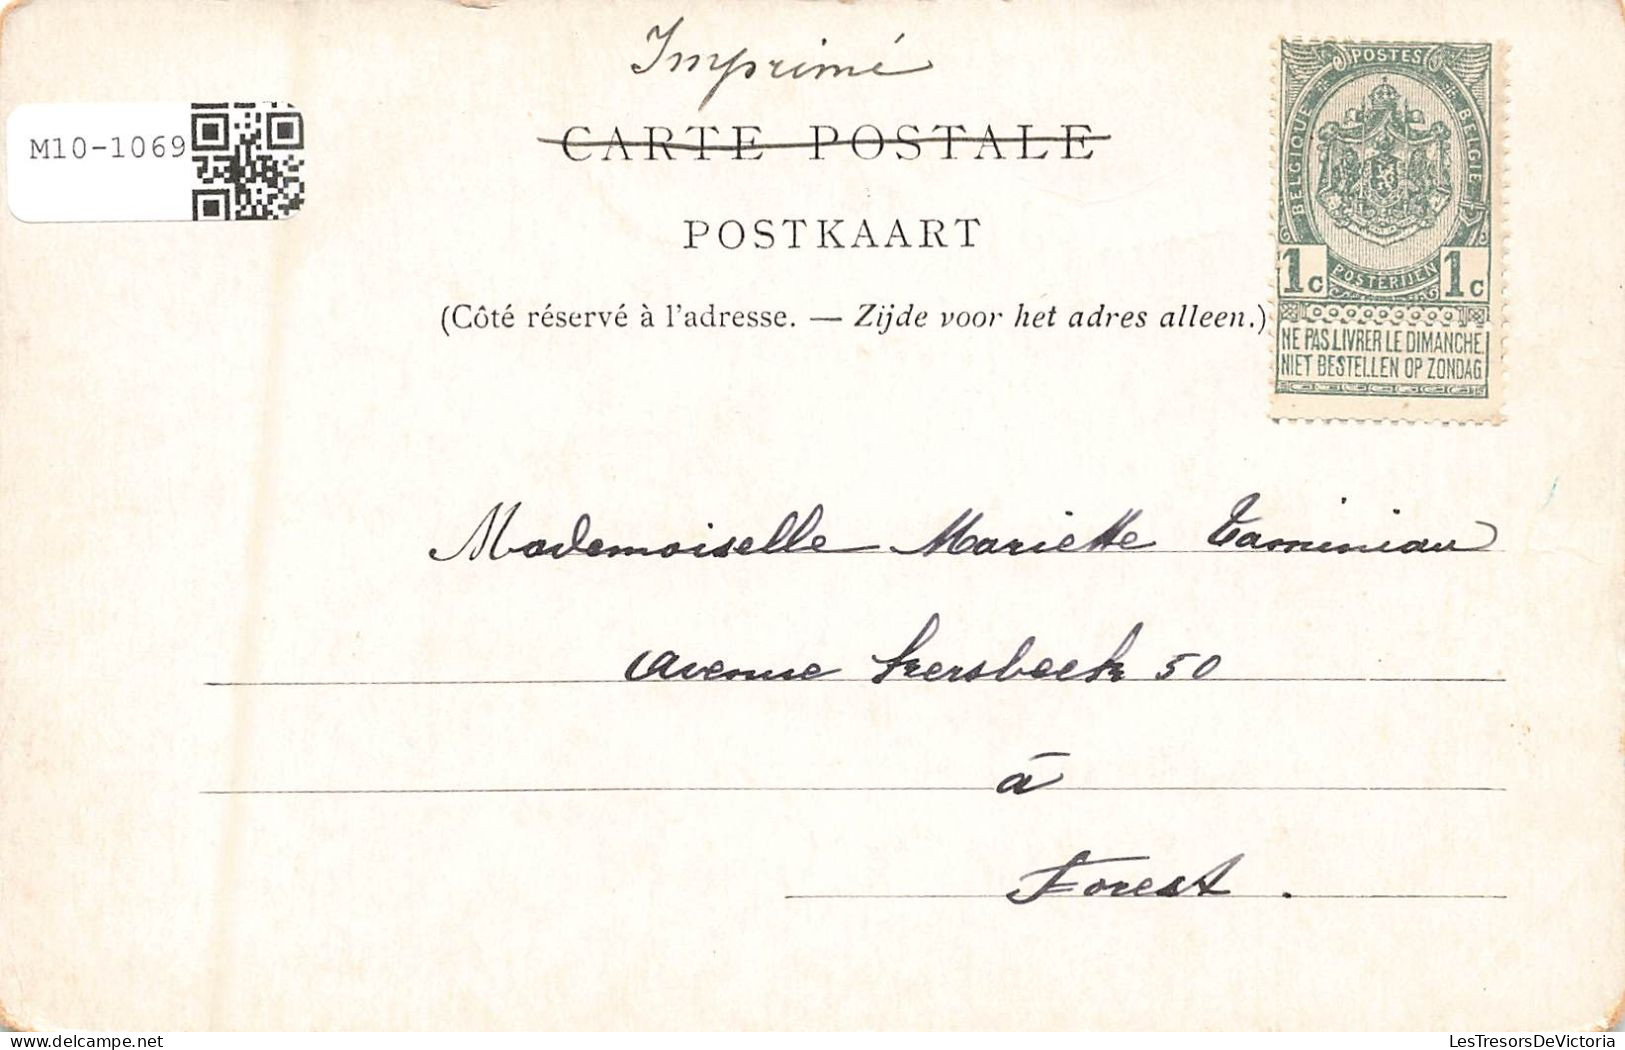 Imprimé
M10-1069
CARTE POSTALE
POSTKAART
(Côté réservé à l'adresse. — Zijde voor het adres alleen.)
POSTES
BELGIQUE
BELGIË
1c POSTERIJEN 1c
NE PAS LIVRER LE DIMANCHE.
NIET BESTELLEN OP ZONDAG
Mademoiselle Mariette Taminiau
Avenue Kersbeek 50
à
Forest.
LesTresorsDeVictoria